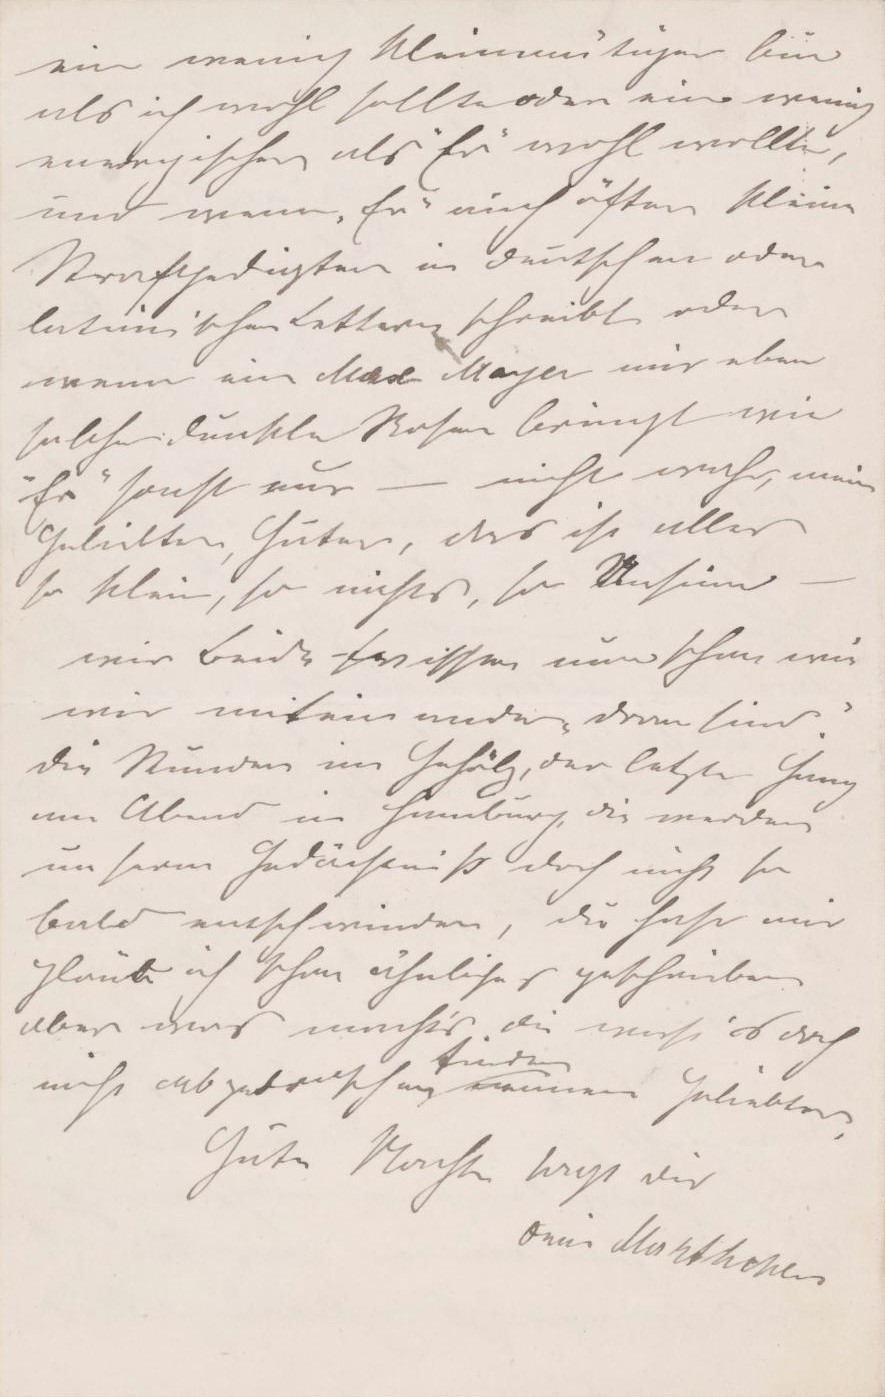 ein wenig kleinmütiger bin
als ich wohl sollte oder ein wenig
energischer als "Er" wohl wollte,
und wenn "Er" auch öfter kleine
Strafpredigten in deutschen oder
lateinischen Lettern schreibt oder
wenn ein Max Mayer mir eben
solche dunkle Rosen bringt wie
"Er" sonst nur — nicht wahr, mein
Geliebter, Guter, das ist alles
so klein, so nichts, so Unsinn —
wir Beide wissen nun schon wie
wir miteinander "dran sind".
die Stunden im Gehölz, der letzte Gang
am Abend in Hamburg, die werden
unserm Gedächtniß doch nicht so
bald entschwinden, du hast mir
glaub ich schon ähnliches geschrieben
aber was macht's, du wirst es doch
nicht abgedroschen finden
nennen Geliebter,
Gute Nacht sagt dir
dein Marthchen